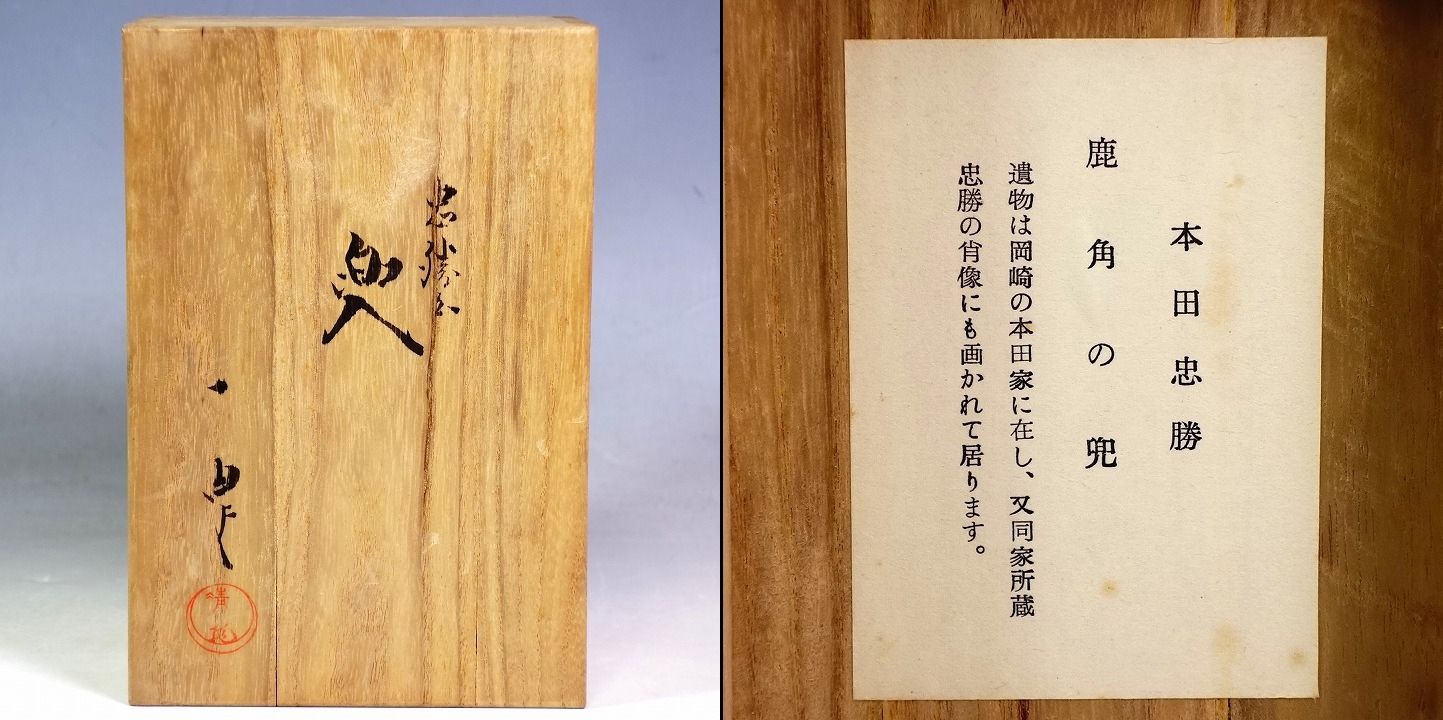 忠勝公
兜
本田忠勝
鹿角の兜
遺物は岡崎の本田家に在し、又同家所蔵
忠勝の肖像にも画かれて居ります。